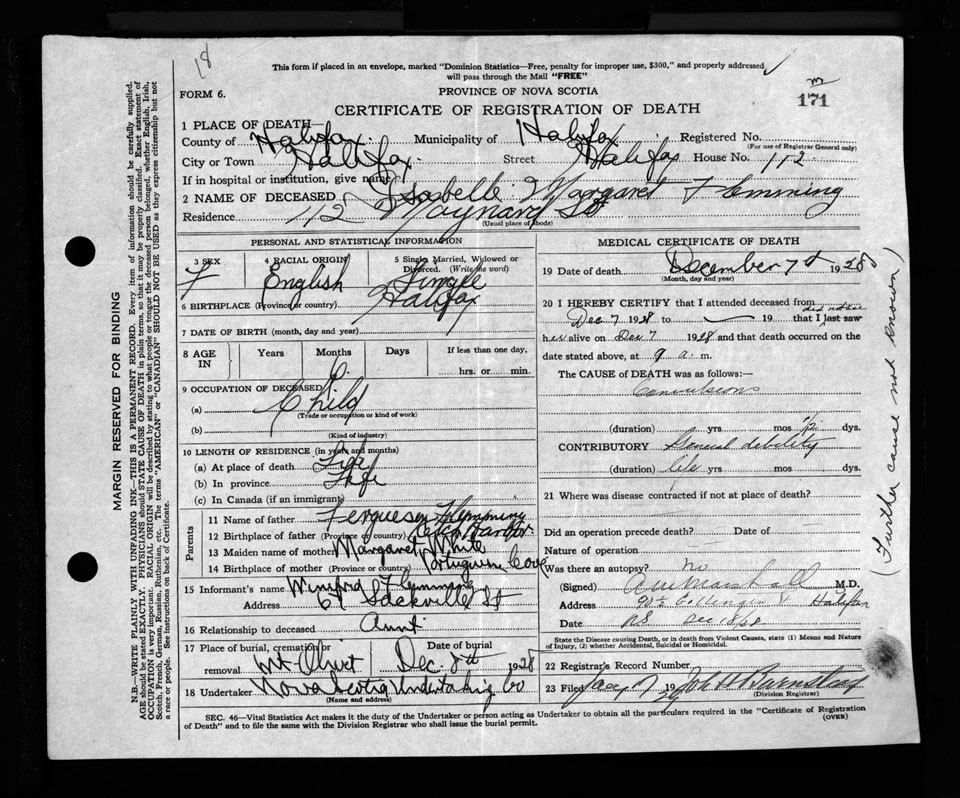 18
This form if placed in an envelope, marked "Dominion Statistics—Free, penalty for improper use, $300," and properly addressed
will pass through the Mail "FREE"
FORM 6.
PROVINCE OF NOVA SCOTIA
171
CERTIFICATE OF REGISTRATION OF DEATH
1 PLACE OF DEATH—
County of Halifax Municipality of Halifax Registered No.
(For use of Registrar General only)
City or Town Halifax. Street Halifax House No. 112
If in hospital or institution, give name
2 NAME OF DECEASED Isabelle Margaret Flemming
Residence 112 Maynard St
(Usual place of abode)
PERSONAL AND STATISTICAL INFORMATION
3 SEX F
4 RACIAL ORIGIN English
5 Single, Married, Widowed or Divorced. (Write the word) Single
6 BIRTHPLACE (Province or country) Halifax
7 DATE OF BIRTH (month, day and year)
8 AGE IN Years Months Days If less than one day,
6 hrs. or min.
9 OCCUPATION OF DECEASED
(a) Child
(Trade or occupation or kind of work)
(b)
(Kind of industry)
10 LENGTH OF RESIDENCE (in years and months)
(a) At place of death Life
(b) In province Life
(c) In Canada (if an immigrant)
Parents
11 Name of father Ferguson Flemming
12 Birthplace of father (Province or country) Harbor
13 Maiden name of mother Margaret White
14 Birthplace of mother (Province or country) Portuguese Cove
15 Informant's name Winifred Flemming
Address 67 Sackville St
16 Relationship to deceased Aunt
17 Place of burial, cremation or removal Mt Olivet Date of burial Dec. 8th 1928
18 Undertaker Nova Scotia Undertaking Co
(Name and address)
MEDICAL CERTIFICATE OF DEATH
19 Date of death December 7th 1928
(Month, day and year)
20 I HEREBY CERTIFY that I attended deceased from
Dec 7 1928 to — 19 that I last saw did not see
her alive on Dec 7 1928 and that death occurred on the
date stated above, at 9 a. m.
The CAUSE of DEATH was as follows:—
Convulsions
(duration) yrs. mos 1/2 dys.
CONTRIBUTORY General debility
(duration) life yrs mos dys.
(Further cause not known)
21 Where was disease contracted if not at place of death?
Did an operation precede death? Date of
Nature of operation
Was there an autopsy? no
(Signed) Marshall M.D.
Address Halifax
Date
State the Disease causing Death, or in death from Violent Causes, state (1) Means and Nature
of Injury, (2) whether Accidental, Suicidal or Homicidal.
22 Registrar's Record Number
23 Filed Jany 7 1929
(Division Registrar)
SEC. 46—Vital Statistics Act makes it the duty of the Undertaker or person acting as Undertaker to obtain all the particulars required in the "Certificate of Registration
of Death" and to file the same with the Division Registrar who shall issue the burial permit.
(OVER)
MARGIN RESERVED FOR BINDING
N.B.—WRITE PLAINLY WITH UNFADING INK—THIS IS A PERMANENT RECORD. Every item of information should be carefully supplied.
AGE should be stated EXACTLY. PHYSICIANS should STATE CAUSE OF DEATH in plain terms, so that it may be properly classified. Exact statement of
OCCUPATION is very important. RACIAL ORIGIN will be described by stating to what people or tongue the deceased person belonged, whether English, Irish,
Scotch, French, German, Russian, Ruthenian, etc. The terms "AMERICAN" or "CANADIAN" SHOULD NOT BE USED as they express citizenship but not
a race or people. See instructions on back of Certificate.